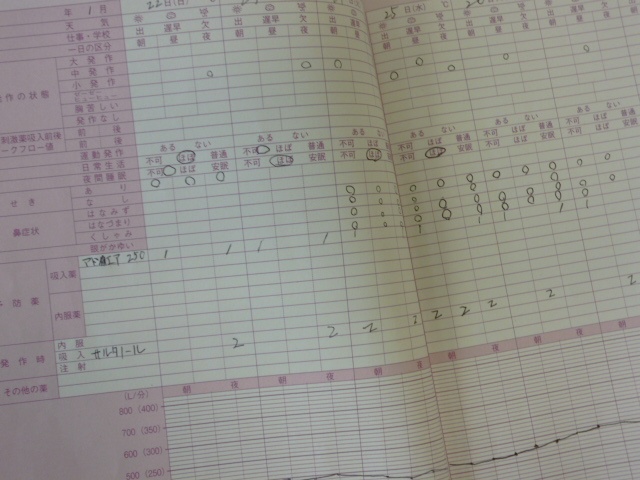 年 1 月 22日(日) 25日(水)
天気
仕事・学校 出 遅早 欠 出 遅早 欠 出 遅早 欠 出 遅早 欠
一日の区分 朝 昼 夜 朝 昼 夜 朝 昼 夜 朝 昼 夜
大発作
中発作
小発作
作の状態
胸苦しい
発作なし
刺激薬吸入前後 前
ークフロー値 後
運動発作 ある ない ある ない ある ない ある ない
日常生活 不可 ほぼ 普通 不可 ほぼ 普通 不可 ほぼ 普通 不可 ほぼ 普通
夜間睡眠 不可 ほぼ 安眠 不可 ほぼ 安眠 不可 ほぼ 安眠 不可 ほぼ 安眠
せき あり
なし
はなみず
鼻症状 はなづまり
くしゃみ
目がかゆい
吸入薬 アドエア 250
防薬
内服薬
内服
発作時 吸入 サルタノール
注射
その他の薬
朝 夜 朝 夜 朝 夜 朝 夜
(L/分)
800 (400)
700 (350)
600 (300)
500 (250)